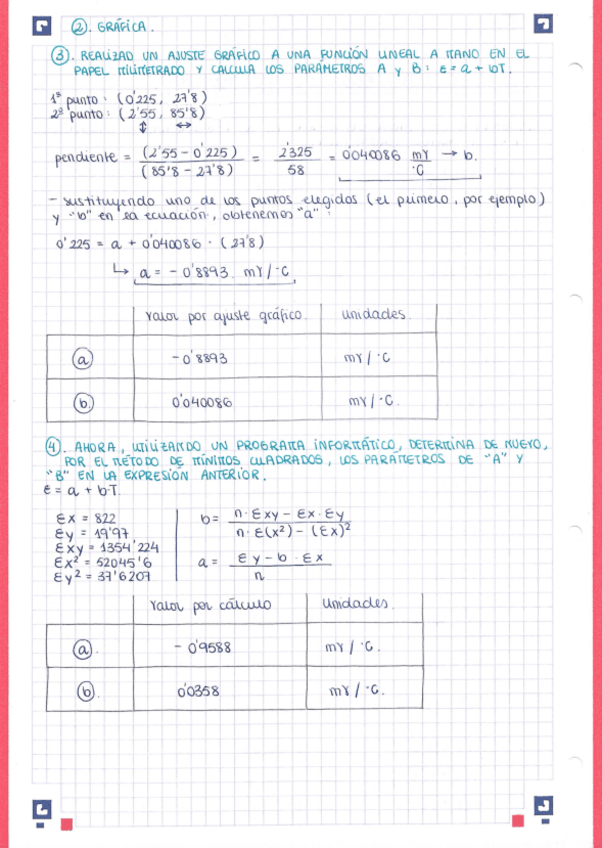 ②. GRÁFICA.
③. REALIZAD UN AJUSTE GRÁFICO A UNA FUNCIÓN LINEAL A MANO EN EL
PAPEL MILIMETRADO Y CALCULA LOS PARÁMETROS A y B: ε = a + bT.
1º punto: (0'225, 27'8)
2º punto: (2'55, 85'8)
↕ ↔
pendiente = (2'55 - 0'225) / (85'8 - 27'8) = 2'325 / 58 = 0'040086 mV/°C → b.
- sustituyendo uno de los puntos elegidos (el primero, por ejemplo)
y "b" en la ecuación, obtenemos "a":
0'225 = a + 0'040086 · (27'8)
↳ a = - 0'8893. mV/°C
valor por ajuste gráfico. unidades.
ⓐ -0'8893 mV/°C
ⓑ 0'040086 mV/°C.
④. AHORA, UTILIZANDO UN PROGRAMA INFORMÁTICO, DETERMINA DE NUEVO,
POR EL MÉTODO DE MÍNIMOS CUADRADOS, LOS PARÁMETROS DE "A" Y
"B" EN LA EXPRESIÓN ANTERIOR.
ε = a + b·T.
Σx = 822
Σy = 19'97
Σxy = 1354'224
Σx² = 52045'6
Σy² = 37'6207
b = n·Σxy - Σx·Σy / n·Σ(x²) - (Σx)²
a = Σy - b · Σx / n
valor por cálculo unidades.
ⓐ. - 0'9588 mV/°C.
ⓑ. 0'0358 mV/°C.